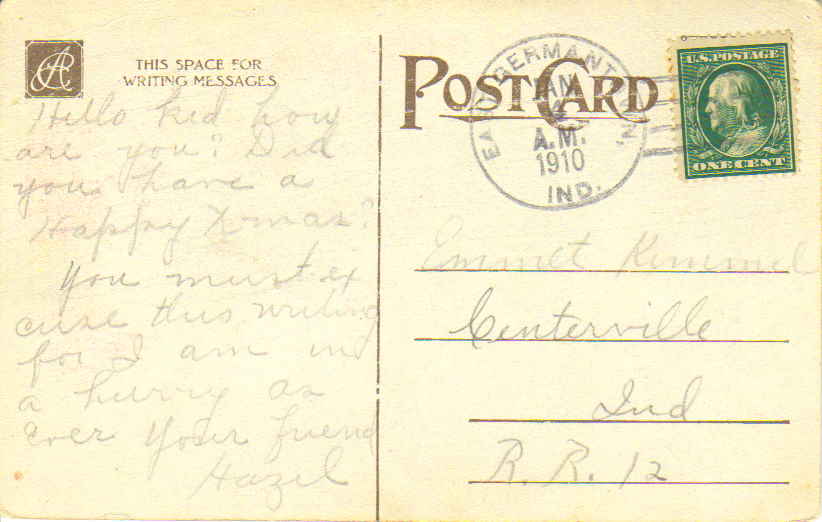 THIS SPACE FOR
WRITING MESSAGES
Hello kid how
are you? Did
you have a
Happy Xmas?
You must ex
cuse this writing
for I am in
a hurry as
ever your friend
Hazel
POST CARD
EAST GERMANTOWN,
JAN
A.M.
1910
IND.
U.S. POSTAGE
ONE CENT
Emmet Kimmel
Centerville
Ind
R. R. 12